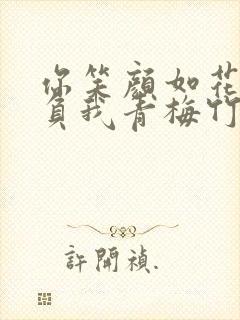 你笑顏如花
負我青梅竹
許開禎.